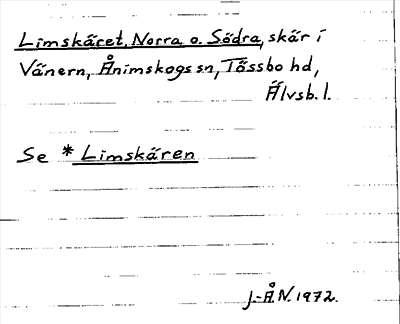 Limskäret, Norra o. Södra, skär i
Vänern, Ånimskogs sn, Tössbo hd,
Älvsb. l.
Se * Limskären
J.-Å.N. 1972.